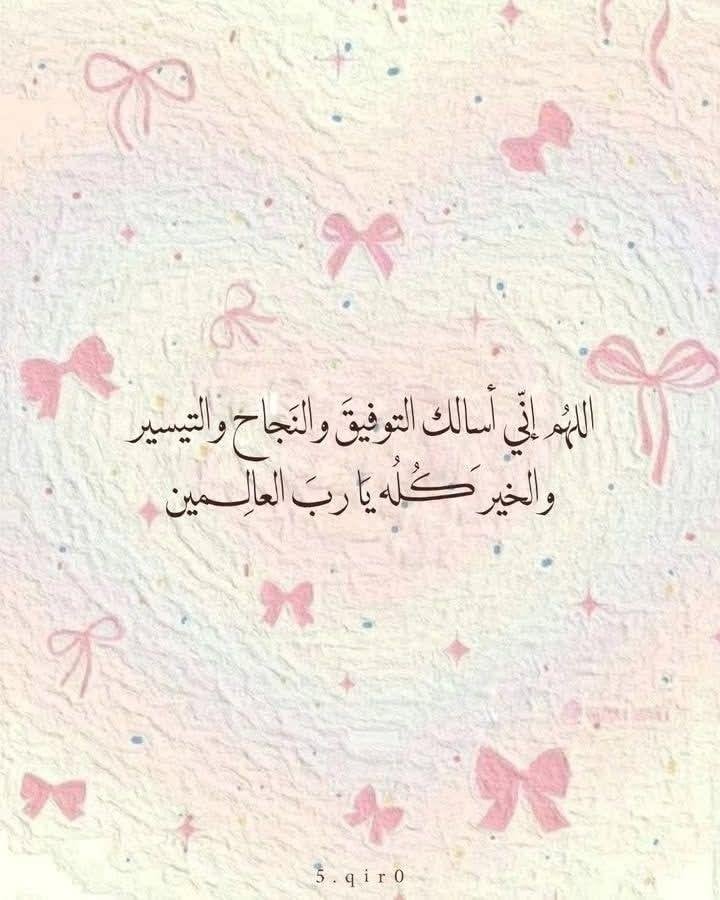 اللهُم إنّي أسالك التوفيقَ والنَجاح والتيسير
والخير كَُلُه يَا ربَ العالِـمين
5.qir0